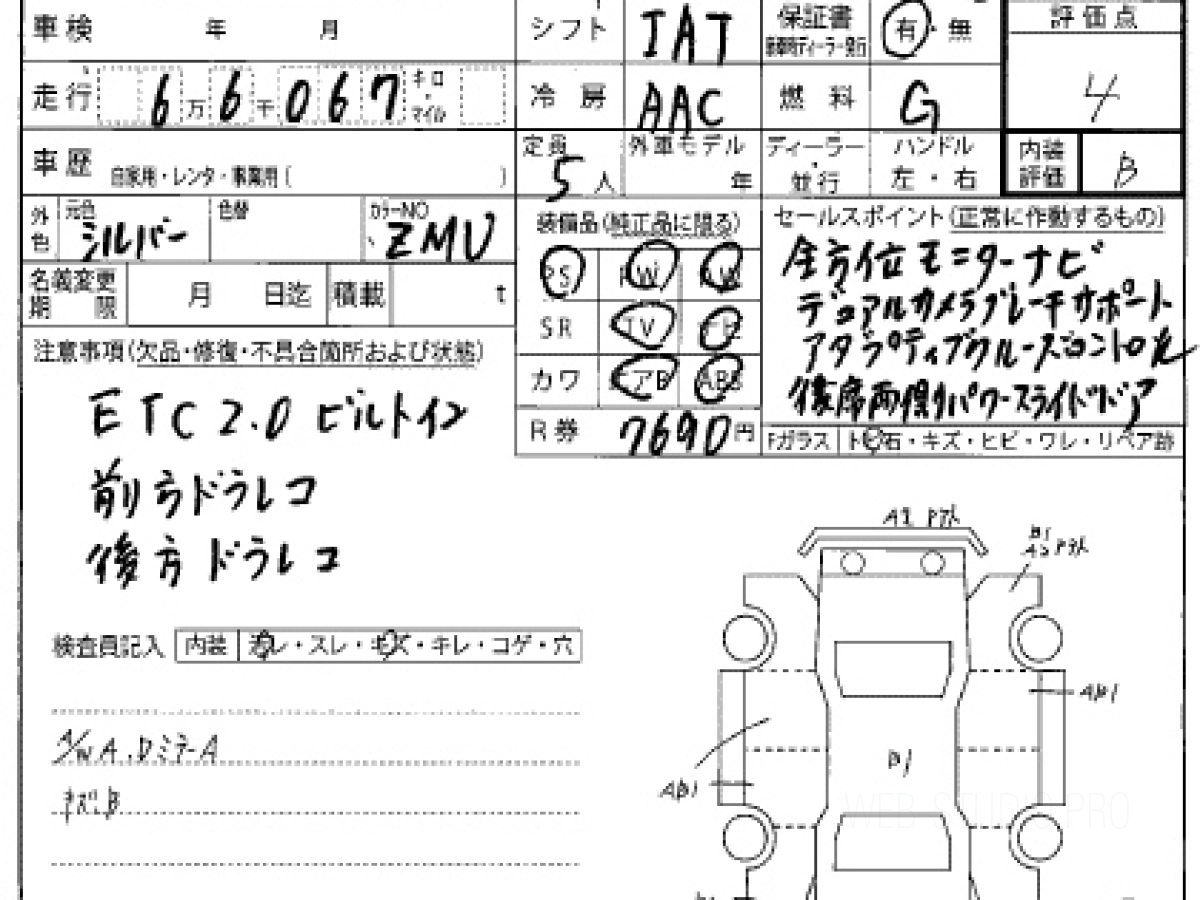 車検 年 月
シフト IAT
保証書 有・無
新車時ディーラー発行
評価点
走行 6万6千067 キロ・マイル
冷房 AAC
燃料 G
4
車歴 自家用・レンタ・事業用( )
定員 5人
外車モデル 年
ディーラー・並行
ハンドル 左・右
内装評価 B
外色 元色 シルバー 色替 カラーNO ZMU
装備品(純正品に限る)
PS PW AW
SR TV
カワ エアB ABS
R券 7690円
セールスポイント(正常に作動するもの)
全方位モニターナビ
デュアルカメラブレーキサポート
アダプティブクルーズコントロール
後席両側パワースライドドア
Fガラス トビ石・キズ・ヒビ・ワレ・リペア跡
名義変更期限 月 日迄 積載 t
注意事項(欠品・修復・不具合箇所および状態)
ETC2.0 ビルトイン
前方ドラレコ
後方ドラレコ
検査員記入 内装 スレ・キズ・キレ・コゲ・穴
A/W A.Dミラー A
キズ.B
B1
AB1
B1
AB1
WEB STUDIO PRO